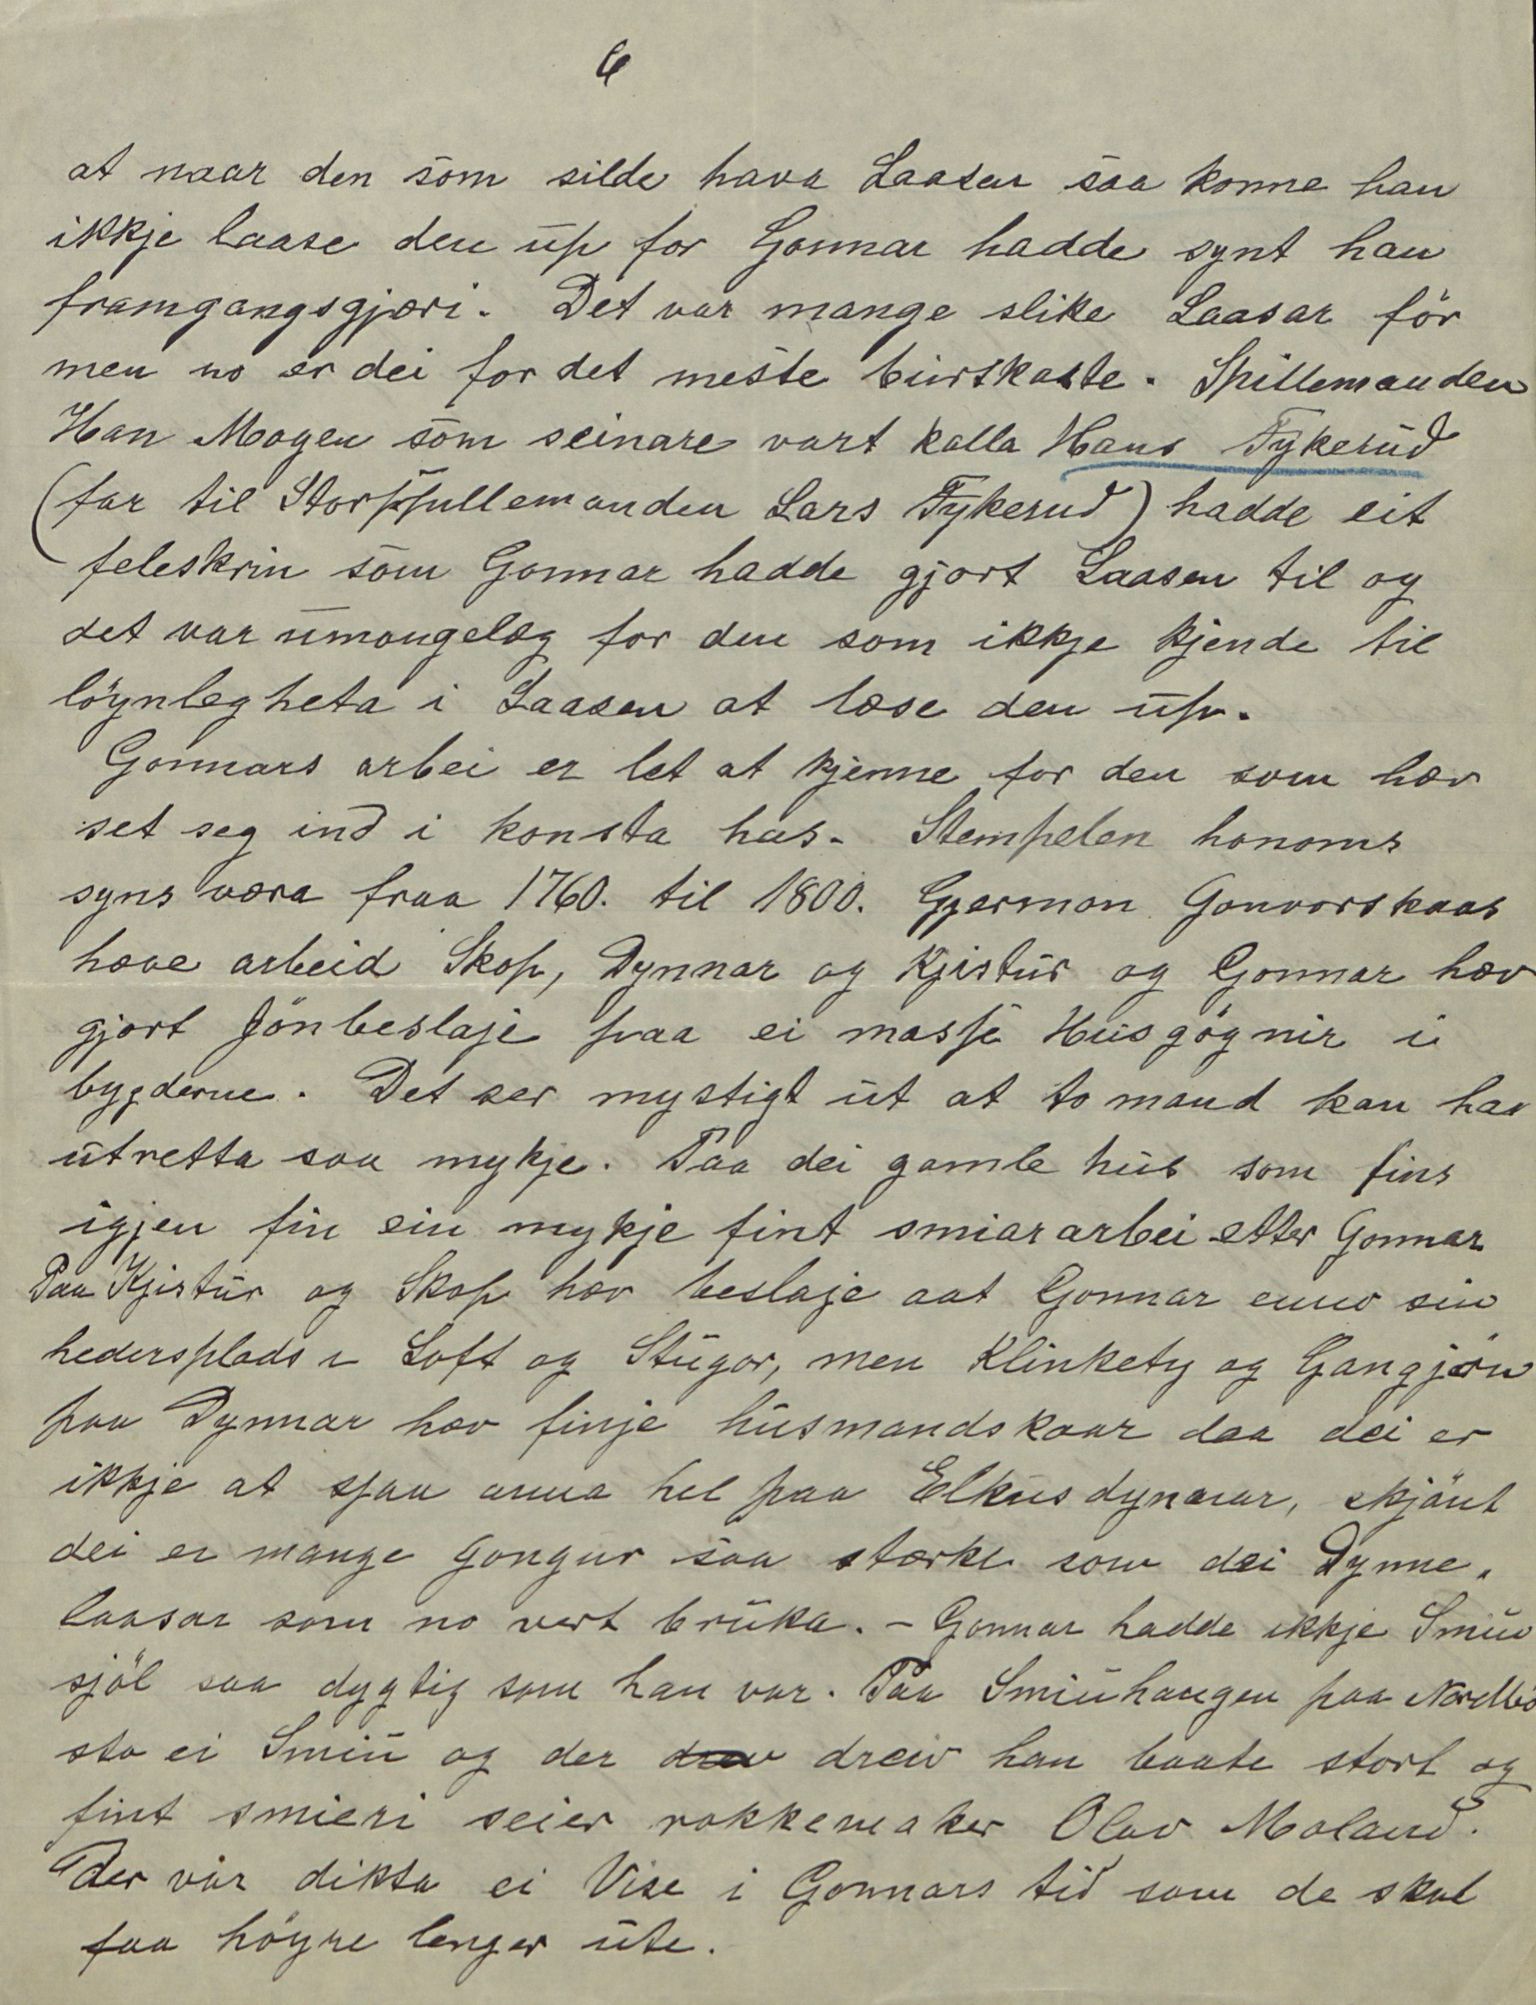 6
at naar den som silde hava Laasen saa konne han
ikkje laase den up for Gonnar hadde synt han
framgangsgjæri. Det var mange slike Laasar før
men no er dei for det meste burskaste. Spillemanden
Han Mogen som seinare vart kalla Hans Fykerud
(far til Storspillemanden Lars Fykerud) hadde eit
feleskrin som Gonnar hadde gjort Laasen til og
det var umongelæg for den som ikkje kjende til
löynlegheta i Laasen at læse den up.
Gonnars arbei er let at kjenne for den som hæv
set seg ind i konsta has. Stempelen honoms
syns væra fraa 1760. til 1800. Gjermon Gonvorskaas
hæve arbeid Skop, Dynnar og Kjistur og Gonnar hæv
gjort Jönbeslaje paa ei masse Husgögnir i
bygderne. Det ser mystigt ut at to mand kan hav
utretta saa mykje. Paa dei gamle hus som fins
igjen fin ein mykje fint smiararbei etter Gonnar
Paa Kjistur og Skop hæv beslaje aat Gonnar enno sin
hedersplads i Loft og Stugor, men Klinkety og Gangjörn
paa Dynnar hæv finje husmandskaar daa dei er
ikkje at sjaa anna hel paa Elkusdynnar, skjönt
dei er mange gongur saa stærke som dei Dynne-
laasar som no vert bruka. - Gonnar hadde ikkje Smiu
sjöl saa dygtig som han var. Paa Smiuhaugen paa Nordbö
sto ei Smiu og der dreiv han baate stort og
fint smieri seier rokkemaker Olav Moland.
Der var dikta ei Vise i Gonnars tid som de skal
faa höyre lenger ute.